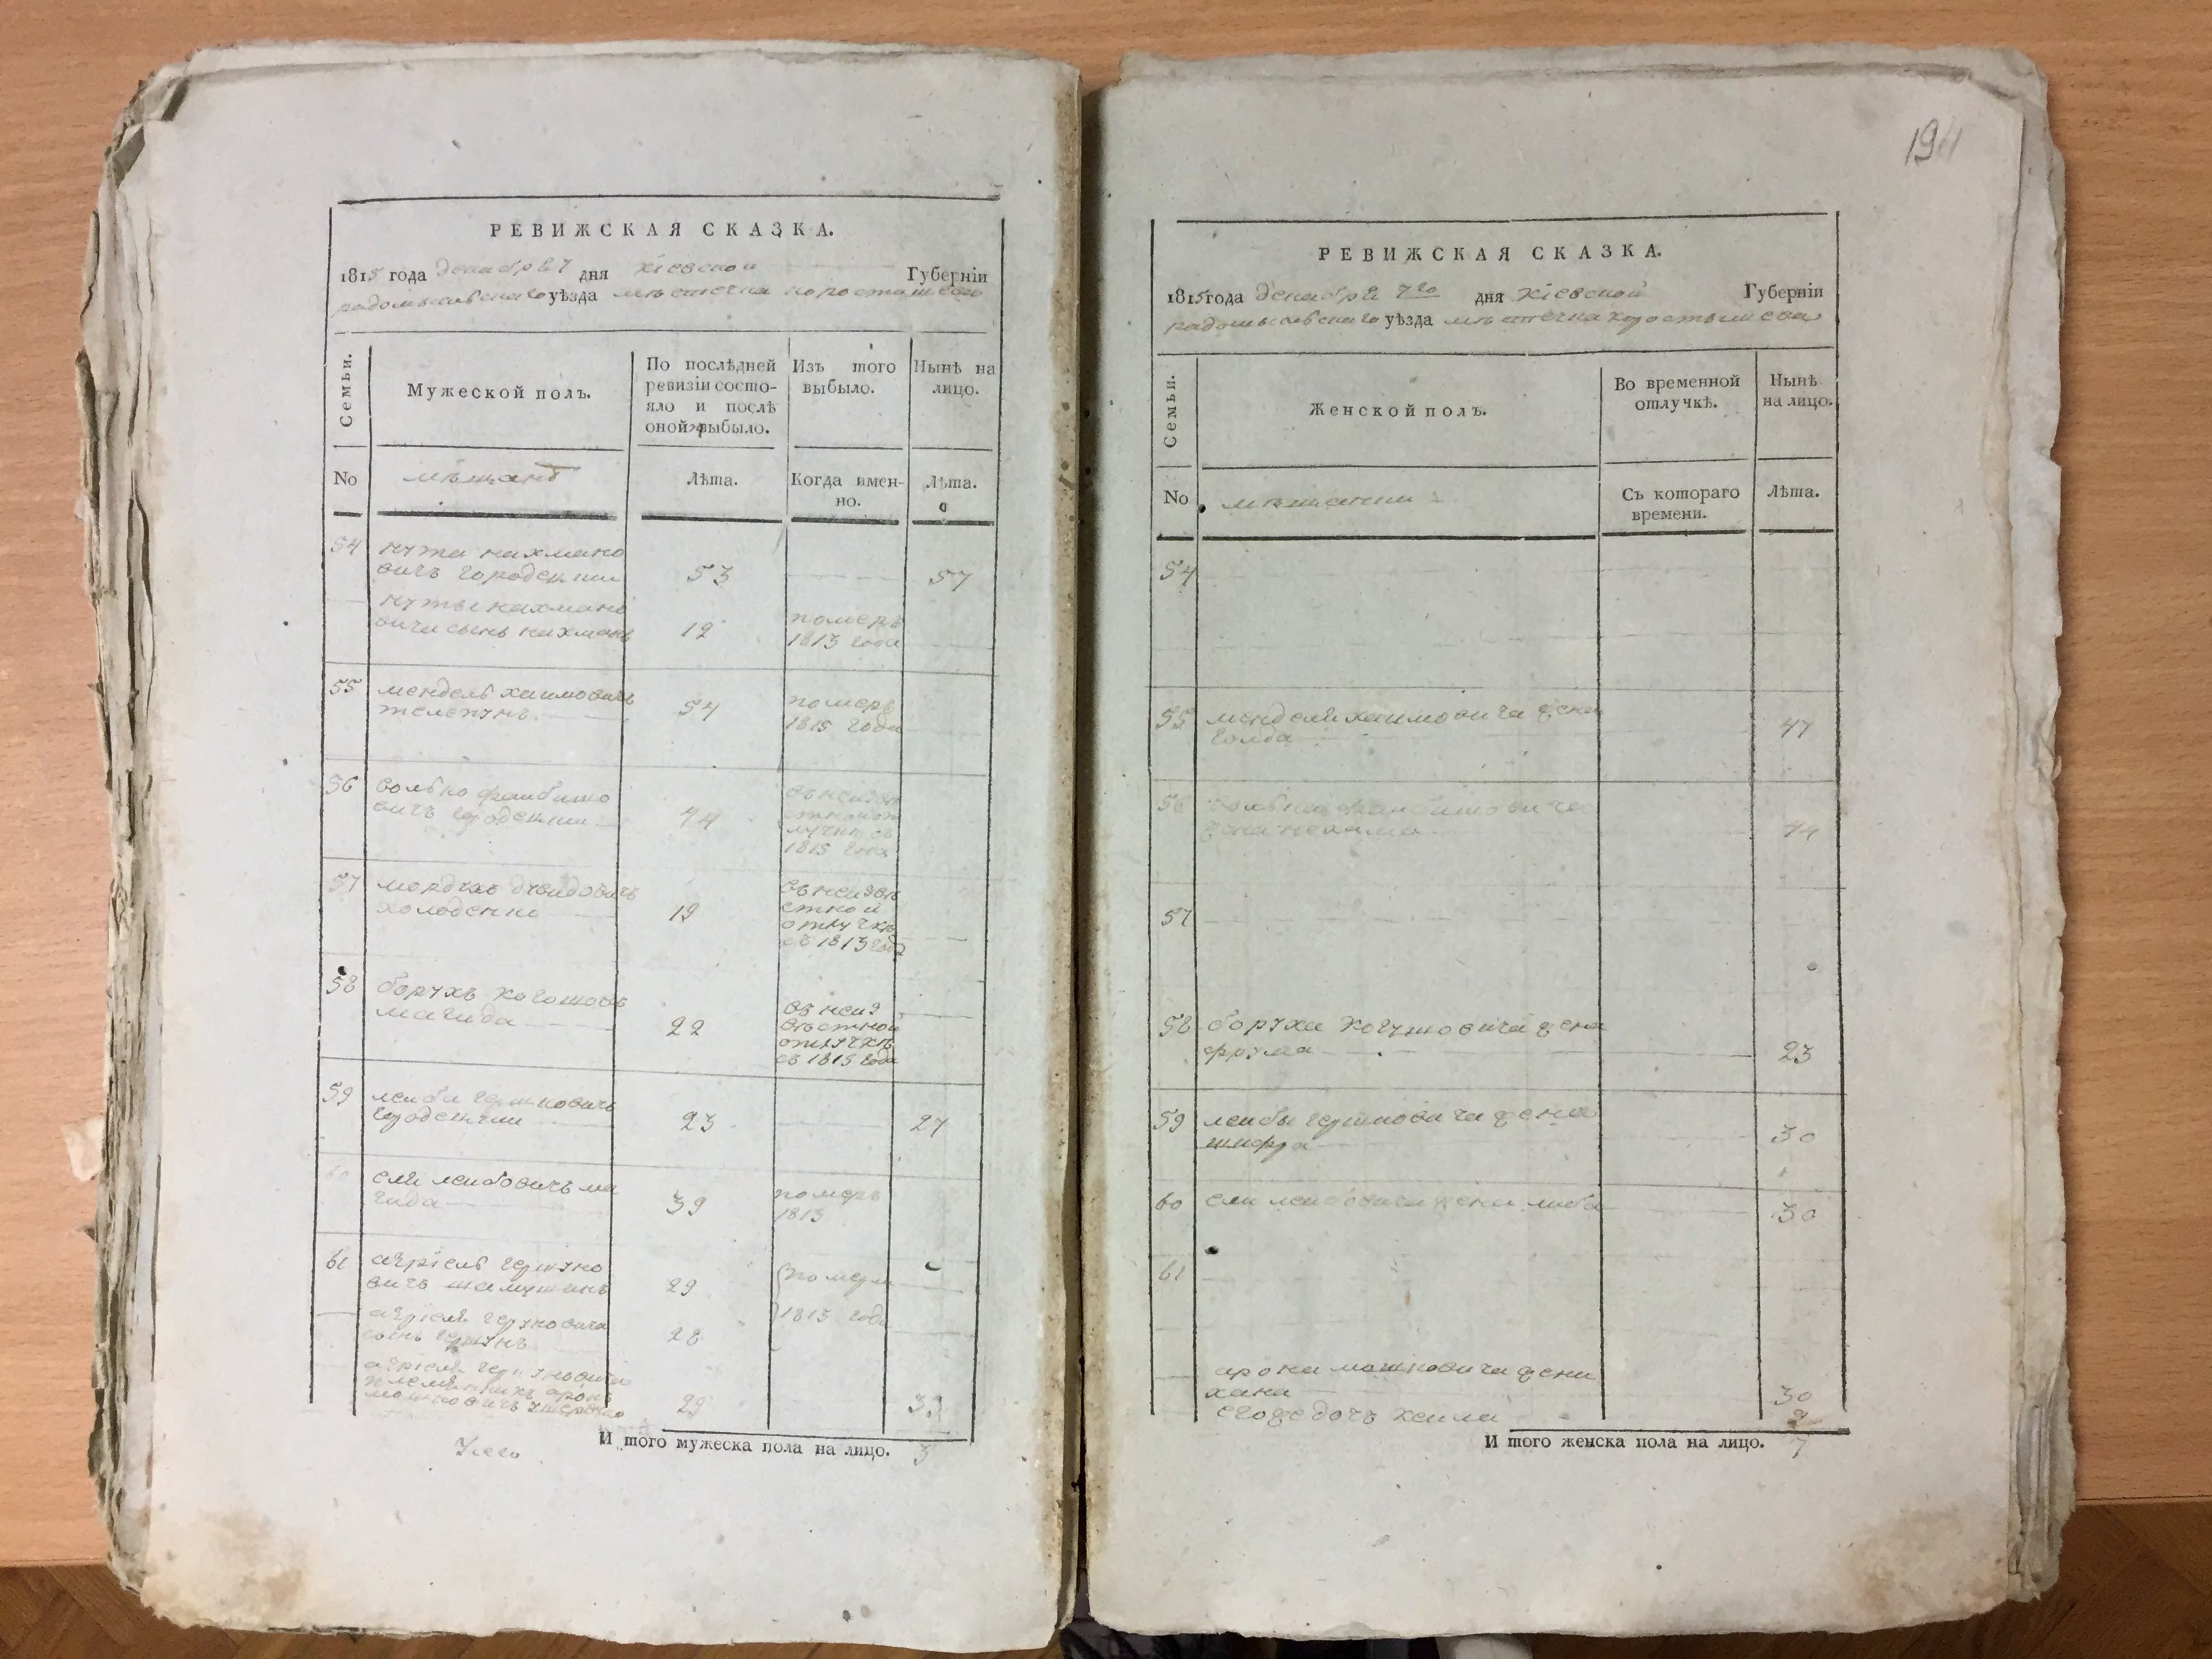 РЕВИЖСКАЯ СКАЗКА.
1815 года декабря 7 дня Кіевской Губерніи
радомысльскаго уѣзда мѣстечка коростишева
Семьи.
Мужеской полъ.
По послѣдней
ревизіи состо-
яло и послѣ
оной выбыло.
Изъ того
выбыло.
Нынѣ на
лицо.
No
мѣщанъ
Лѣта.
Когда имен-
но.
Лѣта.
54 нута нахмано
вичъ городецкии 53 57
нуты нахмано
вича сынъ нахманъ 12 померъ
1813 года
55 мендель хаимовичъ
телепунъ 54 померъ
1815 года
56 волько фаибишо
вичъ городецкии 44 въ неизвѣ
стной от
лучке съ
1815 года
57 мордухъ дувидовичъ
холоденко 19 въ неизвѣ
стной
отлучкѣ
съ 1813 года
58 борухъ
магида 22 въ неиз
вѣстной
отлучкѣ
съ 1815 года
59 лейба гершковичъ
городецкии 23 27
60 еля лейбовичъ ма
гида 39 померъ
1813
61 азріель гершко
вичъ 29 померли
азріеля
сынъ 28 1813 года
азріеля
племянникъ аронъ
мошковичъ 29 33
И того мужеска пола на лицо. 3
194
РЕВИЖСКАЯ СКАЗКА.
1815 года декабря 7го дня Кіевской Губерніи
радомысльскаго уѣзда мѣстечка коростышева
Семьи.
Женской полъ.
Во временной
отлучкѣ.
Нынѣ
на лицо.
No
мѣщанки
Съ котораго
времени.
Лѣта.
54
55 менделя хаимовича жена
голда 47
56 волька фаибишовича
жена нехама 44
57
58 боруха жена
фрума 23
59 лейбы гершковича жена
шифра 30
60 ели лейбовича жена либа 30
61
арона мошковича жена
хана 30
егожъ дочь хейла 9
И того женска пола на лицо. 7